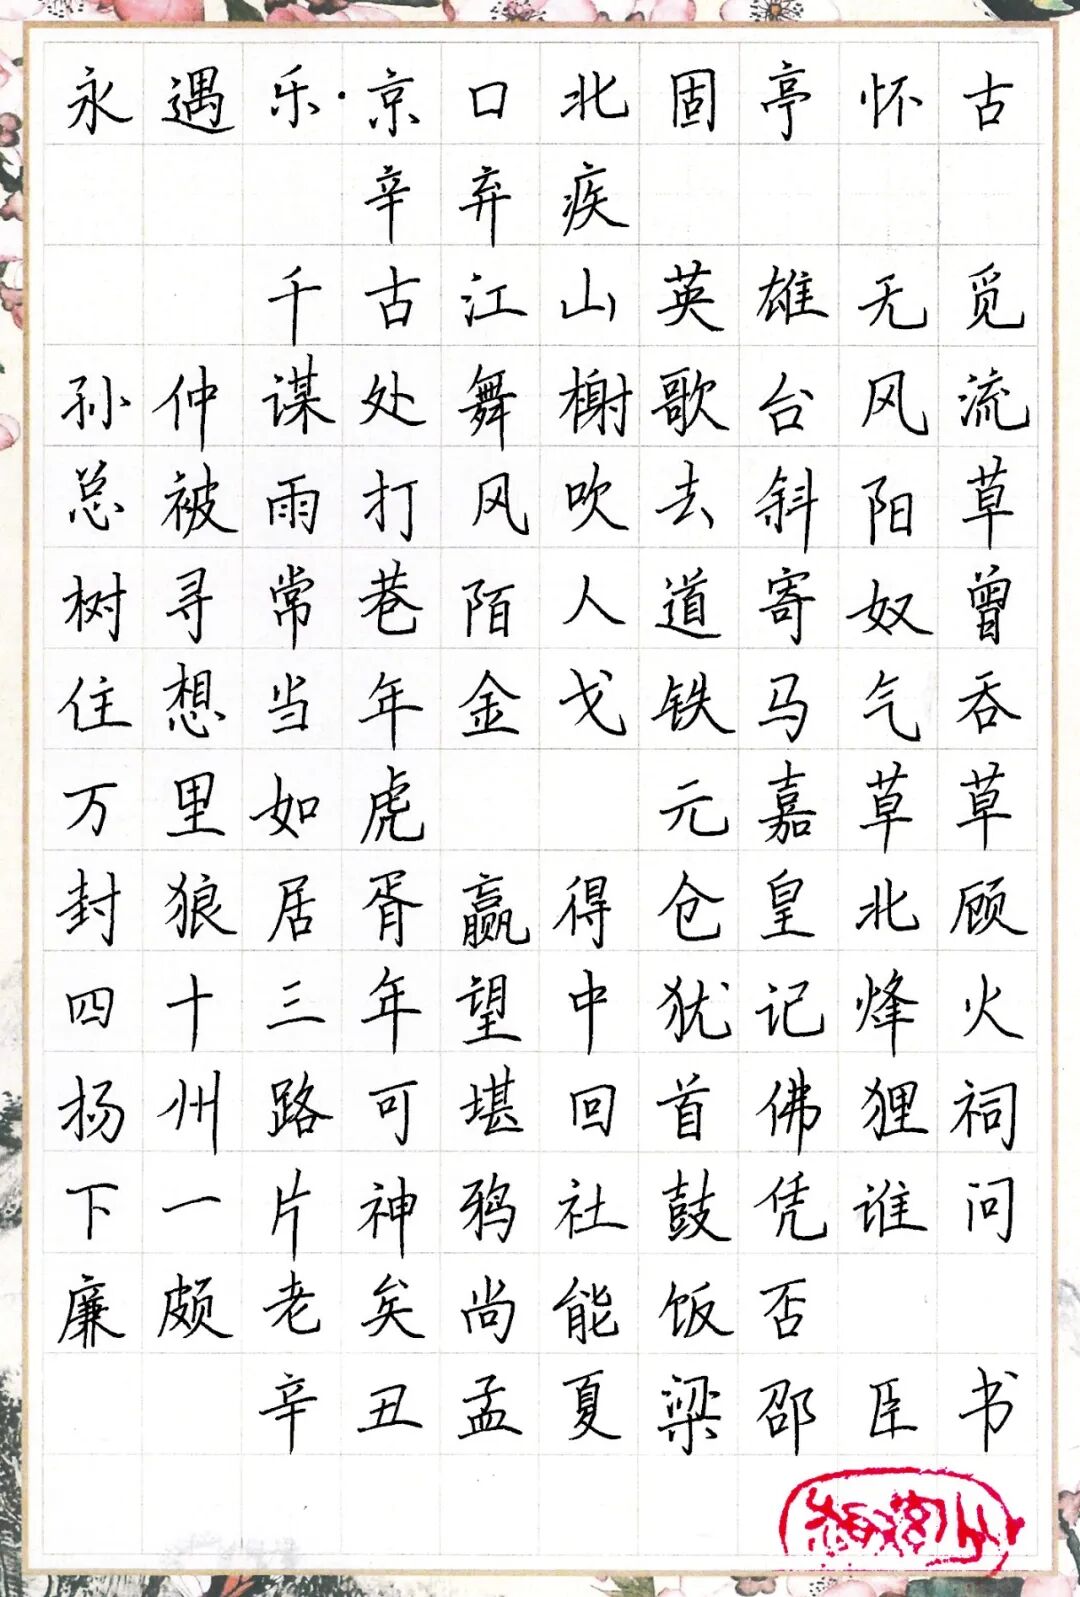 永遇乐·京口北固亭怀古
辛弃疾
千古江山英雄无觅
孙仲谋处舞榭歌台风流
总被雨打风吹去斜阳草
树寻常巷陌人道寄奴曾
住想当年金戈铁马气吞
万里如虎 元嘉草草
封狼居胥赢得仓皇北顾
四十三年望中犹记烽火
扬州路可堪回首佛狸祠
下一片神鸦社鼓凭谁问
廉颇老矣尚能饭否
辛丑孟夏梁邵臣书